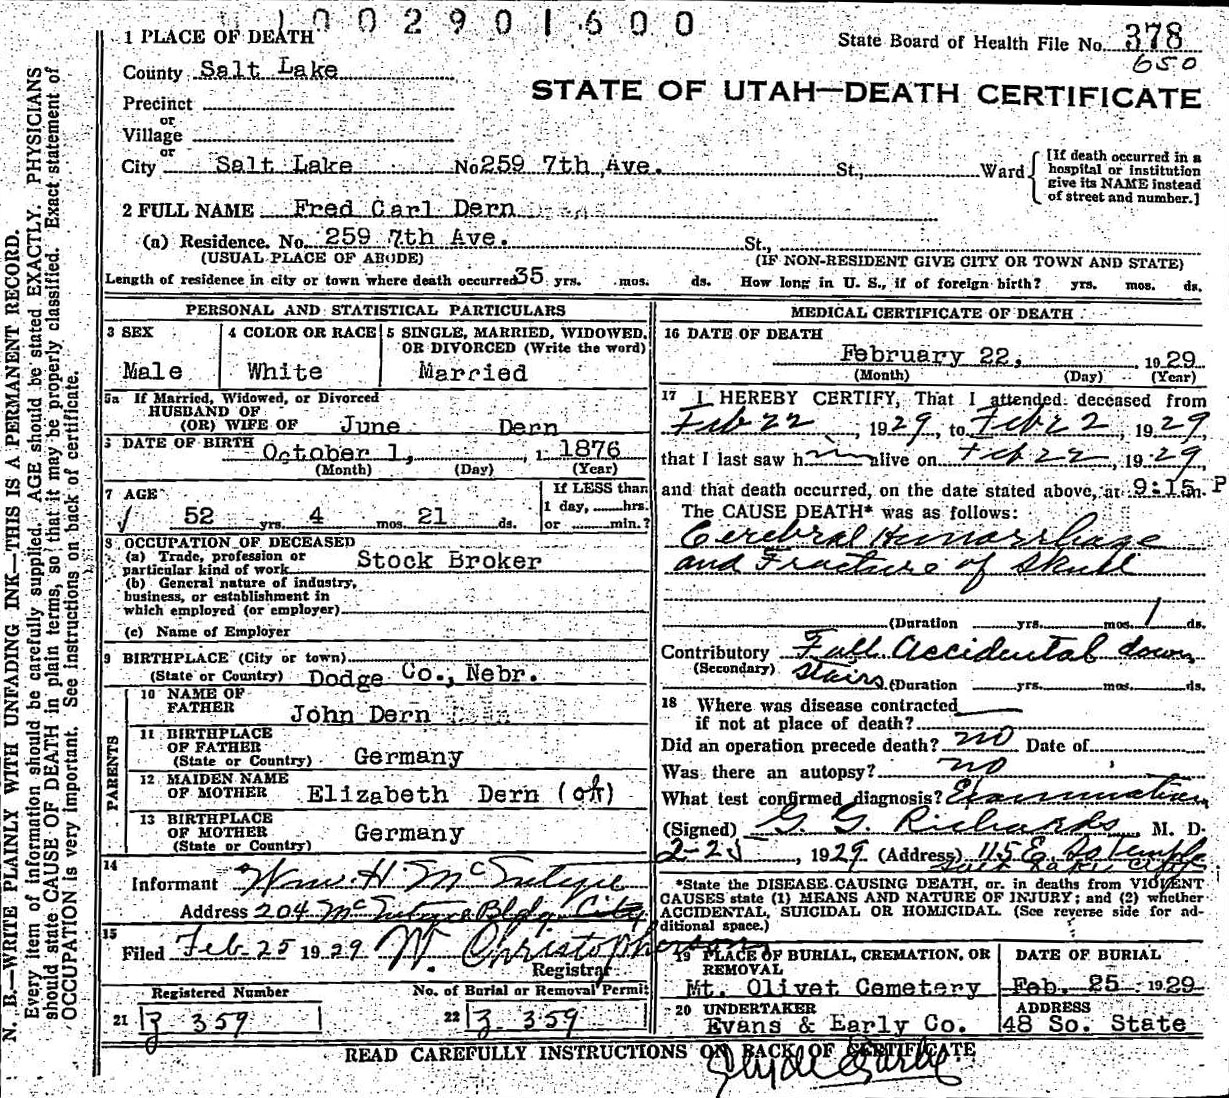 1002901600
1 PLACE OF DEATH
State Board of Health File No. 378
650
County Salt Lake
STATE OF UTAH—DEATH CERTIFICATE
Precinct
or
Village
or
City Salt Lake No 259 7th Ave. St., Ward
[If death occurred in a
hospital or institution
give its NAME instead
of street and number.]
2 FULL NAME Fred Carl Dern
(a) Residence. No. 259 7th Ave. St.,
(USUAL PLACE OF ABODE) (IF NON-RESIDENT GIVE CITY OR TOWN AND STATE)
Length of residence in city or town where death occurred 35 yrs. mos. ds. How long in U. S., if of foreign birth? yrs. mos. ds.
PERSONAL AND STATISTICAL PARTICULARS
3 SEX
Male
4 COLOR OR RACE
White
5 SINGLE, MARRIED, WIDOWED,
OR DIVORCED (Write the word)
Married
5a If Married, Widowed, or Divorced
HUSBAND OF
(OR) WIFE OF June Dern
6 DATE OF BIRTH October 1, 1 1876
(Month) (Day) (Year)
7 AGE
√ 52 yrs. 4 mos. 21 ds.
If LESS than
1 day, hrs.
or min.?
8 OCCUPATION OF DECEASED
(a) Trade, profession or
particular kind of work Stock Broker
(b) General nature of industry,
business, or establishment in
which employed (or employer)
(c) Name of Employer
9 BIRTHPLACE (City or town)
(State or Country) Dodge Co., Nebr.
PARENTS
10 NAME OF
FATHER
John Dern
11 BIRTHPLACE
OF FATHER
(State or Country) Germany
12 MAIDEN NAME
OF MOTHER Elizabeth Dern (ok)
13 BIRTHPLACE
OF MOTHER Germany
(State or Country)
14
Informant Wm. H. McIntyre
Address 204 McIntyre Bldg City
15
Filed Feb-25 1929 W. Christopherson
Registrar
Registered Number
21 3 359
No. of Burial or Removal Permit
22 3 359
MEDICAL CERTIFICATE OF DEATH
16 DATE OF DEATH
February 22, 1929
(Month) (Day) (Year)
17 I HEREBY CERTIFY, That I attended deceased from
Feb 22, 1929, to Feb 22, 1929,
that I last saw him alive on Feb 22, 1929,
and that death occurred, on the date stated above, at 9:15 P m.
The CAUSE DEATH* was as follows:
Cerebral Hemorrhage
and Fracture of Skull
(Duration yrs. mos. 1 ds.
Contributory Fall Accidental down
(Secondary) stairs (Duration yrs. mos. ds.
18 Where was disease contracted
if not at place of death?
Did an operation precede death? no Date of
Was there an autopsy? no
What test confirmed diagnosis? Examination
(Signed) G. G. Richards, M. D.
2-25, 1929 (Address) 115 E. So Temple
Salt Lake City
*State the DISEASE CAUSING DEATH, or in deaths from VIOLENT
CAUSES state (1) MEANS AND NATURE OF INJURY; and (2) whether
ACCIDENTAL, SUICIDAL OR HOMICIDAL. (See reverse side for ad-
ditional space.)
19 PLACE OF BURIAL, CREMATION, OR
REMOVAL
Mt. Olivet Cemetery
DATE OF BURIAL
Feb. 25 1929
20 UNDERTAKER
Evans & Early Co.
ADDRESS
48 So. State
READ CAREFULLY INSTRUCTIONS ON BACK OF CERTIFICATE
Clyde Early
N. B.—WRITE PLAINLY WITH UNFADING INK—THIS IS A PERMANENT RECORD.
Every item of information should be carefully supplied. AGE should be stated EXACTLY. PHYSICIANS
should state CAUSE OF DEATH in plain terms, so that it may be properly classified. Exact statement of
OCCUPATION is very important. See instructions on back of certificate.